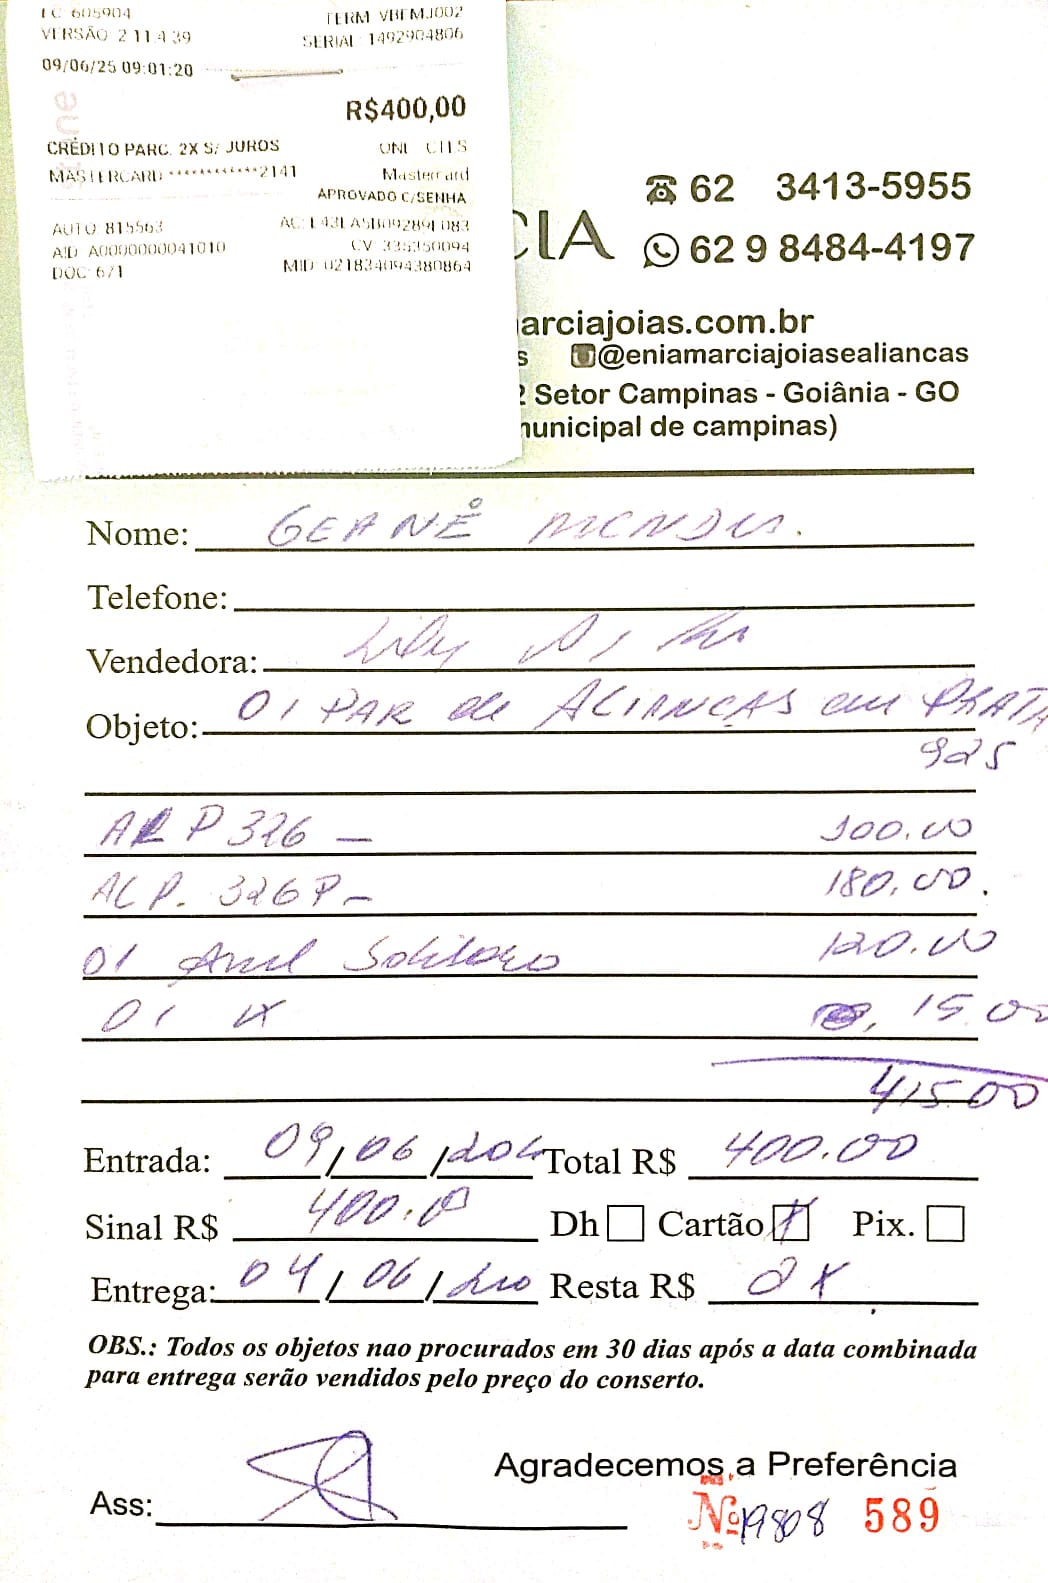 EC 605904 TERM VBFMJ002
VERSÃO 2 11 4 39 SERIAL 1492904806
09/06/25 09:01:20
R$400,00
CRÉDITO PARC. 2X S/ JUROS
MASTERCARD ************2141 Mastercard
APROVADO C/SENHA
AUTO 815563
AID A0000000041010 CV 335350094
DOC 671 MID 021834094380864
CIA
62 3413-5955
62 9 8484-4197
arciajoias.com.br
s @eniamarciajoiasealiancas
2 Setor Campinas - Goiânia - GO
municipal de campinas)
Nome: GEANÊ MENDES.
Telefone:
Vendedora:
Objeto: 01 PAR de ALIANÇAS em PRATA
925
ALP 326 — 100.00
ALP. 326 P - 180,00.
01 Anel Solitário 120.00
01 15.00
415.00
Entrada: 09/06/202 Total R$ 400.00
Sinal R$ 400.0 Dh Cartão X Pix.
Entrega: 04/06/ Resta R$
OBS.: Todos os objetos nao procurados em 30 dias após a data combinada
para entrega serão vendidos pelo preço do conserto.
Agradecemos a Preferência
Ass:
Nº 19808 589